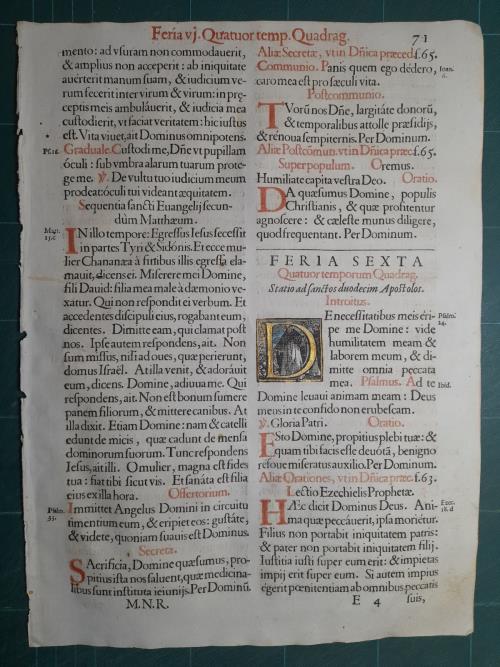 Feria vj. Quatuor temp. Quadrag. 71
mento: ad vsuram non commodauerit,
& amplius non acceperit: ab iniquitate
auerterit manum suam, & iudicium ve-
rum fecerit inter virum & virum: in pre-
ceptis meis ambulauerit, & iudicia mea
custodierit, vt faciat veritatem: hic iustus
est. Vita viuet, ait Dominus omnipotens.
Graduale. Custodi me, Dñe vt pupillam
oculi: sub vmbra alarum tuarum prote-
ge me. ℣. De vultu tuo iudicium meum
prodeat: oculi tui videant æquitatem.
Sequentia sancti Euangelij secun-
dùm Matthæum.
Matt.
15. c
IN illo tempore: Egressus Iesus secessit
in partes Tyri & Sidónis. Et ecce mu-
lier Chananæa à finibus illis egressa cla-
mauit, dicens ei. Miserere mei Domine,
fili Dauid: filia mea malè à dæmonio ve-
xatur. Qui non respondit ei verbum. Et
accedentes discipuli eius, rogabant eum,
dicentes. Dimitte eam, qui clamat post
nos. Ipse autem respondens, ait. Non
sum missus, nisi ad oues, quæ perierunt,
domus Israël. At illa venit, & adorauit
eum, dicens. Domine, adiuua me. Qui
respondens, ait. Non est bonum sumere
panem filiorum, & mittere canibus. At
illa dixit. Etiam Domine: nam & catelli
edunt de micis, quæ cadunt de mensa
dominorum suorum. Tunc respondens
Iesus, ait illi. O mulier, magna est fides
tua: fiat tibi sicut vis. Et sanata est filia
eius ex illa hora. Offertorium.
Psalm.
33.
Immittet Angelus Domini in circuitu
timentium eum, & eripiet eos: gustate,
& videte, quoniam suauis est Dominus.
Secreta.
Sacrificia, Domine quæsumus, pro-
pitius ista nos saluent, quæ medicina-
libus sunt instituta ieiunijs. Per Dominũ.
M.N.R.
Aliæ Secretæ, vt in Dñica præced. f.65.
Communio. Panis quem ego dédero, Ioan.
caro mea est pro sæculi vita.
Postcommunio.
TVorũ nos Dñe, largitate donorũ,
& temporalibus attolle præsidijs,
& rénoua sempiternis. Per Dominum.
Aliæ Postcõmun. vt in Dñica præc. f.65.
Super populum. Oremus.
Humiliate capita vestra Deo. Oratio.
DA quæsumus Domine, populis
Christianis, & quæ profitentur
agnoscere: & cæleste munus diligere,
quod frequentant. Per Dominum.
FERIA SEXTA
Quatuor temporum Quadrag.
Statio ad sanctos duodecim Apostolos.
Introitus.
DE necessitatibus meis éri-
pe me Domine: vide
humilitatem meam &
laborem meum, & di-
mitte omnia peccata
mea. Psalmus. Ad te Ibid.
Psalm.
24.
Domine leuaui animam meam: Deus
meus in te confido non erubescam.
℣. Gloria Patri. Oratio.
ESto Domine, propitius plebi tuæ: &
quam tibi facis esse deuotã, benigno
refoue miseratus auxilio. Per Dominum.
Aliæ Orationes, vt in Dñica præc. f.63.
Lectio Ezechielis Prophetæ.
HÆc dicit Dominus Deus. Ani- Ezec.
ma quæ peccáuerit, ipsa moriétur. 18. d
Filius non portabit iniquitatem patris:
& pater non portabit iniquitatem filij.
Iustitia iusti super eum erit: & impietas
impij erit super eum. Si autem impius
égerit pœnitentiam ab omnibus peccatis
E 4 suis,